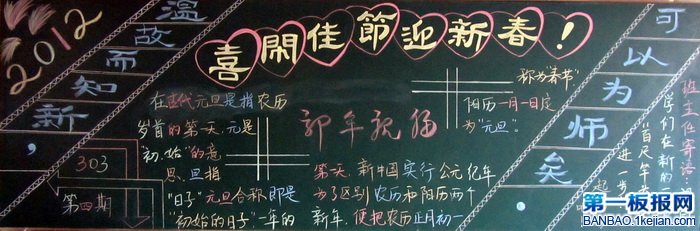 2012
温故而知新，
303
第四期
喜闹佳節迎新春！
在古代元旦是指农历
岁首的第一天.元是
"初.始"的意
思.旦指
"日子"元旦合称即是
"初始的日子"一年的
第一天.新中国实行公元纪年
为了区别农历和阳历两个
新年,便把农历正月初一
称为"春节"
阳历一月一日定
为"元旦".
可以为师矣
班主任寄语
同学们在新的一
"百尺竿
进一步
第一板报网
BANBAO.1kejian.com